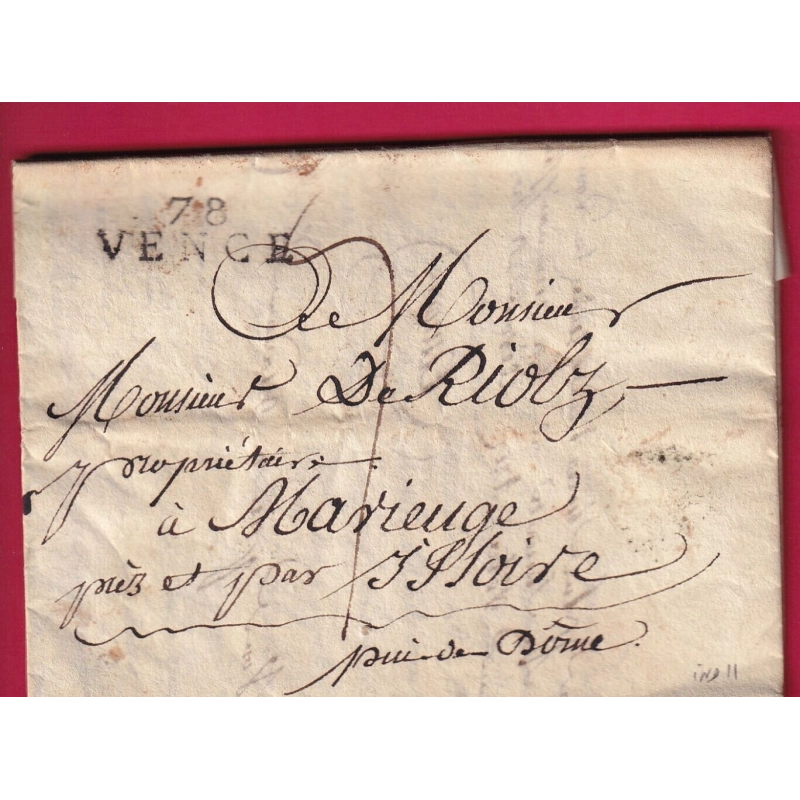 78
VENCE
De Monsieur
Monsieur De Riolz,
propriétaire
à Marieuge
prèz et par Issoire
pui-de Dôme.
ind 11